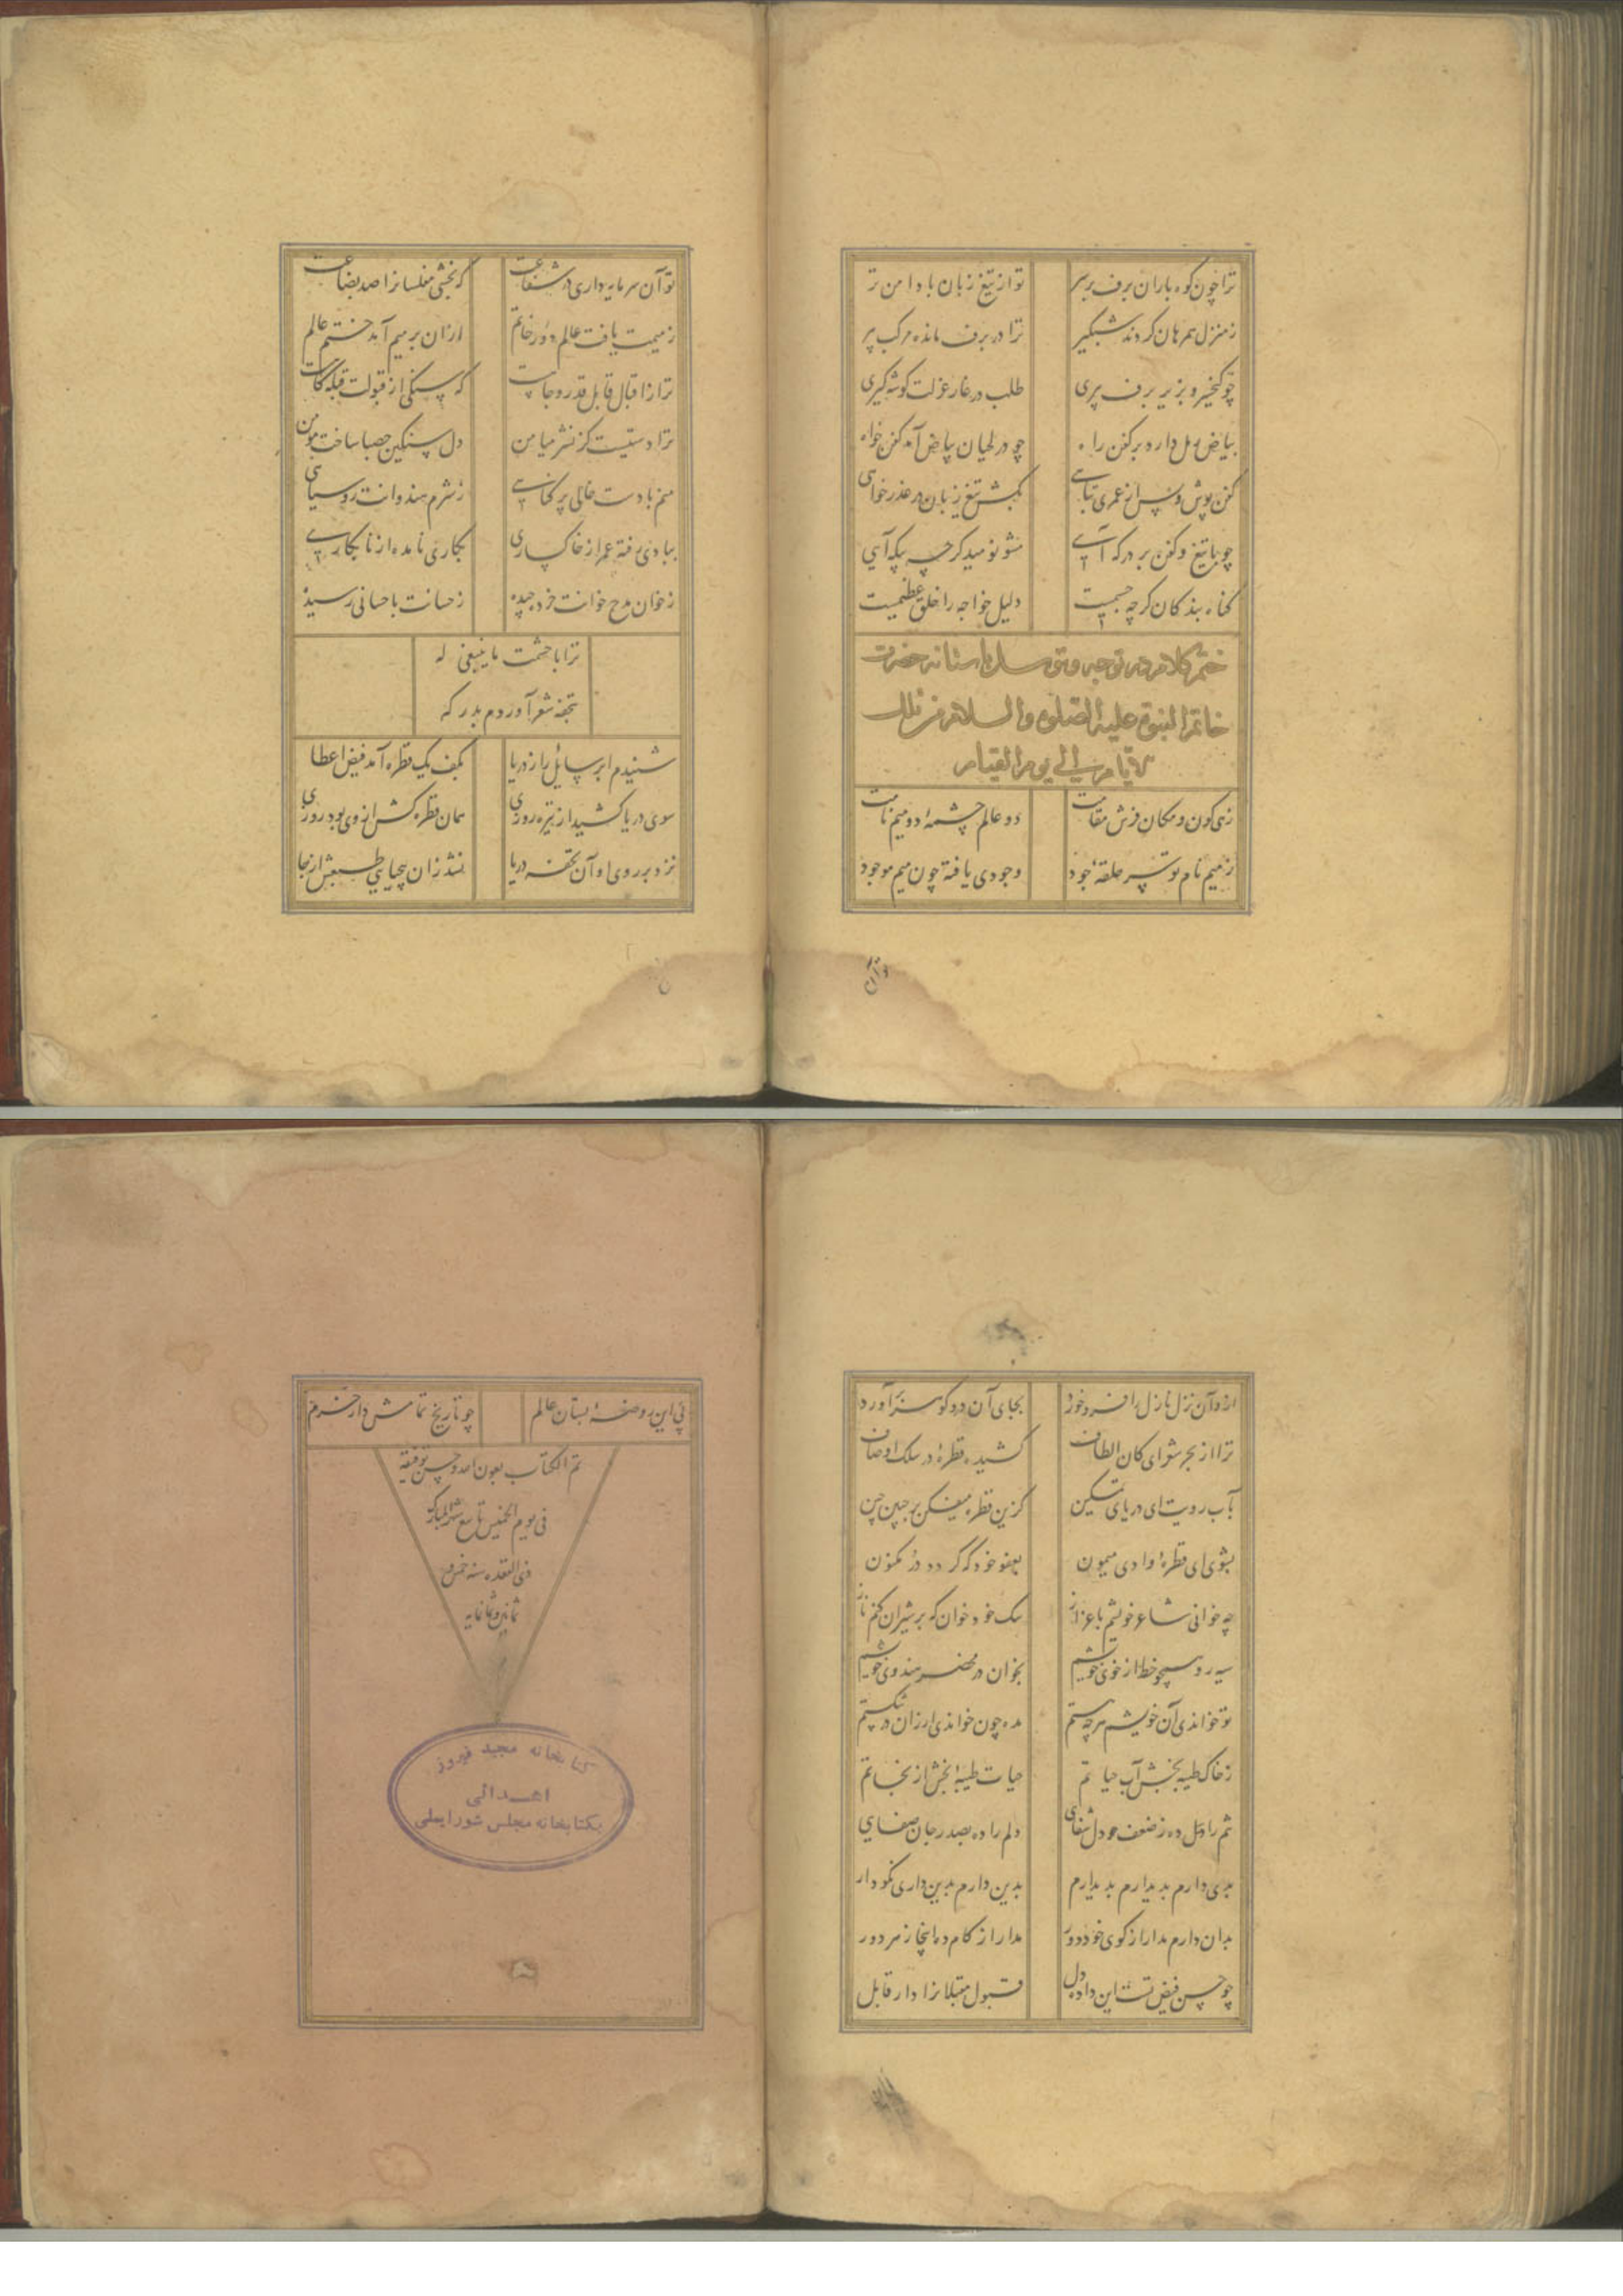 ترا چون کوه باران برف بر سر
تو از تیغ زبان با دامن تر
ز منزل همرهان کردند شبگیر
ترا در برف مانده مرکب پیر
چو کیخسرو بزیر برف پیری
طلب در غار عزلت گوشه گیری
بیاض دارد بر کفن راه
چو در لحیان بیاض آمد کفن خواه
کفن پوش و پس از عمری تباهی
بکش تیغ زبان در عذرخواهی
چو با تیغ و کفن بر درگه آیی
مشو نومید گرچه بیگه آیی
گناه بندگان گرچه جسیمست
دلیل خواجه را خلق عظیمست
ختم کلام در توجه و توسل باستانه حضرت
خاتم النبوة علیه الصلوة والسلام من تلك
الایام الی یوم القیام
زهی کون و مکان فرش مقامت
دو عالم چشمهٔ دو میم نامت
ز میم نام تو سر حلقهٔ جود
وجودی یافته چون میم موجود
تو آن
تو آن سرمایه داری در شفاعت
که بخشی مفلسانرا صد بضاعت
ز میمت یافت عالم دور خاتم
ازان بر میم آمد ختم عالم
ترا از اقبال قابل قدر و جاهت
که سنگی از قبولت قبله گاهت
ترا دستیست کز نشر میامن
دل سنگین حصبا ساخت مومن
منم با دست خالی پر گناهی
ز شرم هندوانت رو سیاهی
ببادی رفته عمر از خاکساری
بکاری نامده از نابکاری
ز خوان مدح خوانت خرده چیده
ز حسانت باحسانی رسیده
ترا با حشمت ما ینبغی له
تحفه شعر آوردم بدرگه
شنیدم ابر سایل راز دریا
بکف یک قطره آمد فیض اعطا
سوی دریا کشید از تیره روزی
همان قطره کش از وی بود روزی
نزد بر روی او آن تحفه دریا
نشد زان بیحیایی طبعش از جا
ازو آن نزل نازل را فرو خورد
بجای آن در و گوهر بر آورد
ترا از بحر شعر ای کان الطاف
کشیده قطرهٔ در سلک اوصاف
بآب رویت ای دریای تمکین
کزین قطره میفکن بر جبین چین
بشوی ای قطرهٔ وادی میمون
بعفو خود که گردد در مکنون
چه خوانی شاعر خویشم باعزاز
سگ خود خوان که بر شیران کنم ناز
سیه رو همچو خط از خوی خویشم
بخوان در محضر هندوی خویشم
تو خواندی آن خویشم هر چه هستم
مده چون خواندی ارزان در شکستم
ز خاک طیبه بخش آب حیاتم
حیات طیبه بخش از نجاتم
تنم را دل ده ز ضعف و دل شفای
دلم را ده بصدر جان صفای
بدی دارم بد بدارم بد بدارم
بدین دارم بدین داری نگو دار
بدان دارم مدار از کوی خود دور
مدار از کام در اینجا ز مر دور
چو حسن فیض تست این داد دل
قبول مقبلانرا دار قابل
پی این روضهٔ بستان عالم
چو تاریخ تمامش دار خرم
تم الکتاب بعون الله و حسن توفیقه
فی یوم الخمیس تاسع شهر المبارک
ذی القعده سنه خمس و
ثمانین و ثمانمایه
کتابخانه مجید فیروز
اهدائی
بکتابخانه مجلس شورایملی